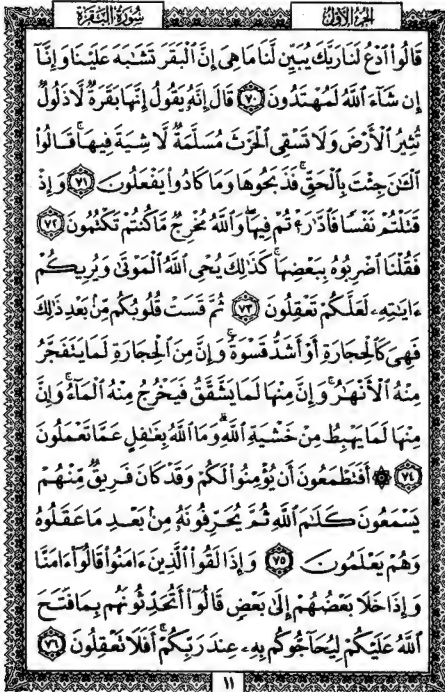 الجزء الأول
سورة البقرة
قَالُوا۟ ٱدْعُ لَنَا رَبَّكَ يُبَيِّن لَّنَا مَا هِىَ إِنَّ ٱلْبَقَرَ تَشَٰبَهَ عَلَيْنَا وَإِنَّآ
إِن شَآءَ ٱللَّهُ لَمُهْتَدُونَ ٧٠ قَالَ إِنَّهُۥ يَقُولُ إِنَّهَا بَقَرَةٌ لَّا ذَلُولٌ
تُثِيرُ ٱلْأَرْضَ وَلَا تَسْقِى ٱلْحَرْثَ مُسَلَّمَةٌ لَّا شِيَةَ فِيهَا ۚ قَالُوا۟
ٱلْـَٰٔنَ جِئْتَ بِٱلْحَقِّ ۚ فَذَبَحُوهَا وَمَا كَادُوا۟ يَفْعَلُونَ ٧١ وَإِذْ
قَتَلْتُمْ نَفْسًا فَٱدَّٰرَْٰٔتُمْ فِيهَا ۖ وَٱللَّهُ مُخْرِجٌ مَّا كُنتُمْ تَكْتُمُونَ ٧٢
فَقُلْنَا ٱضْرِبُوهُ بِبَعْضِهَا ۚ كَذَٰلِكَ يُحْىِ ٱللَّهُ ٱلْمَوْتَىٰ وَيُرِيكُمْ
ءَايَٰتِهِۦ لَعَلَّكُمْ تَعْقِلُونَ ٧٣ ثُمَّ قَسَتْ قُلُوبُكُم مِّنۢ بَعْدِ ذَٰلِكَ
فَهِىَ كَٱلْحِجَارَةِ أَوْ أَشَدُّ قَسْوَةً ۚ وَإِنَّ مِنَ ٱلْحِجَارَةِ لَمَا يَتَفَجَّرُ
مِنْهُ ٱلْأَنْهَٰرُ ۚ وَإِنَّ مِنْهَا لَمَا يَشَّقَّقُ فَيَخْرُجُ مِنْهُ ٱلْمَآءُ ۚ وَإِنَّ
مِنْهَا لَمَا يَهْبِطُ مِنْ خَشْيَةِ ٱللَّهِ ۗ وَمَا ٱللَّهُ بِغَٰفِلٍ عَمَّا تَعْمَلُونَ
٧٤ ۞ أَفَتَطْمَعُونَ أَن يُؤْمِنُوا۟ لَكُمْ وَقَدْ كَانَ فَرِيقٌ مِّنْهُمْ
يَسْمَعُونَ كَلَٰمَ ٱللَّهِ ثُمَّ يُحَرِّفُونَهُۥ مِنۢ بَعْدِ مَا عَقَلُوهُ
وَهُمْ يَعْلَمُونَ ٧٥ وَإِذَا لَقُوا۟ ٱلَّذِينَ ءَامَنُوا۟ قَالُوٓا۟ ءَامَنَّا
وَإِذَا خَلَا بَعْضُهُمْ إِلَىٰ بَعْضٍ قَالُوٓا۟ أَتُحَدِّثُونَهُم بِمَا فَتَحَ
ٱللَّهُ عَلَيْكُمْ لِيُحَآجُّوكُم بِهِۦ عِندَ رَبِّكُمْ ۚ أَفَلَا تَعْقِلُونَ ٧٦
١١